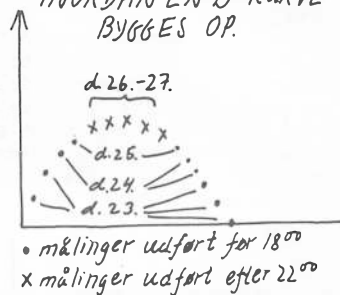 BYGGES OP.
d. 26.-27.
d. 25.
d. 24.
d. 23.
• målinger udført før 18⁰⁰
x målinger udført efter 22⁰⁰